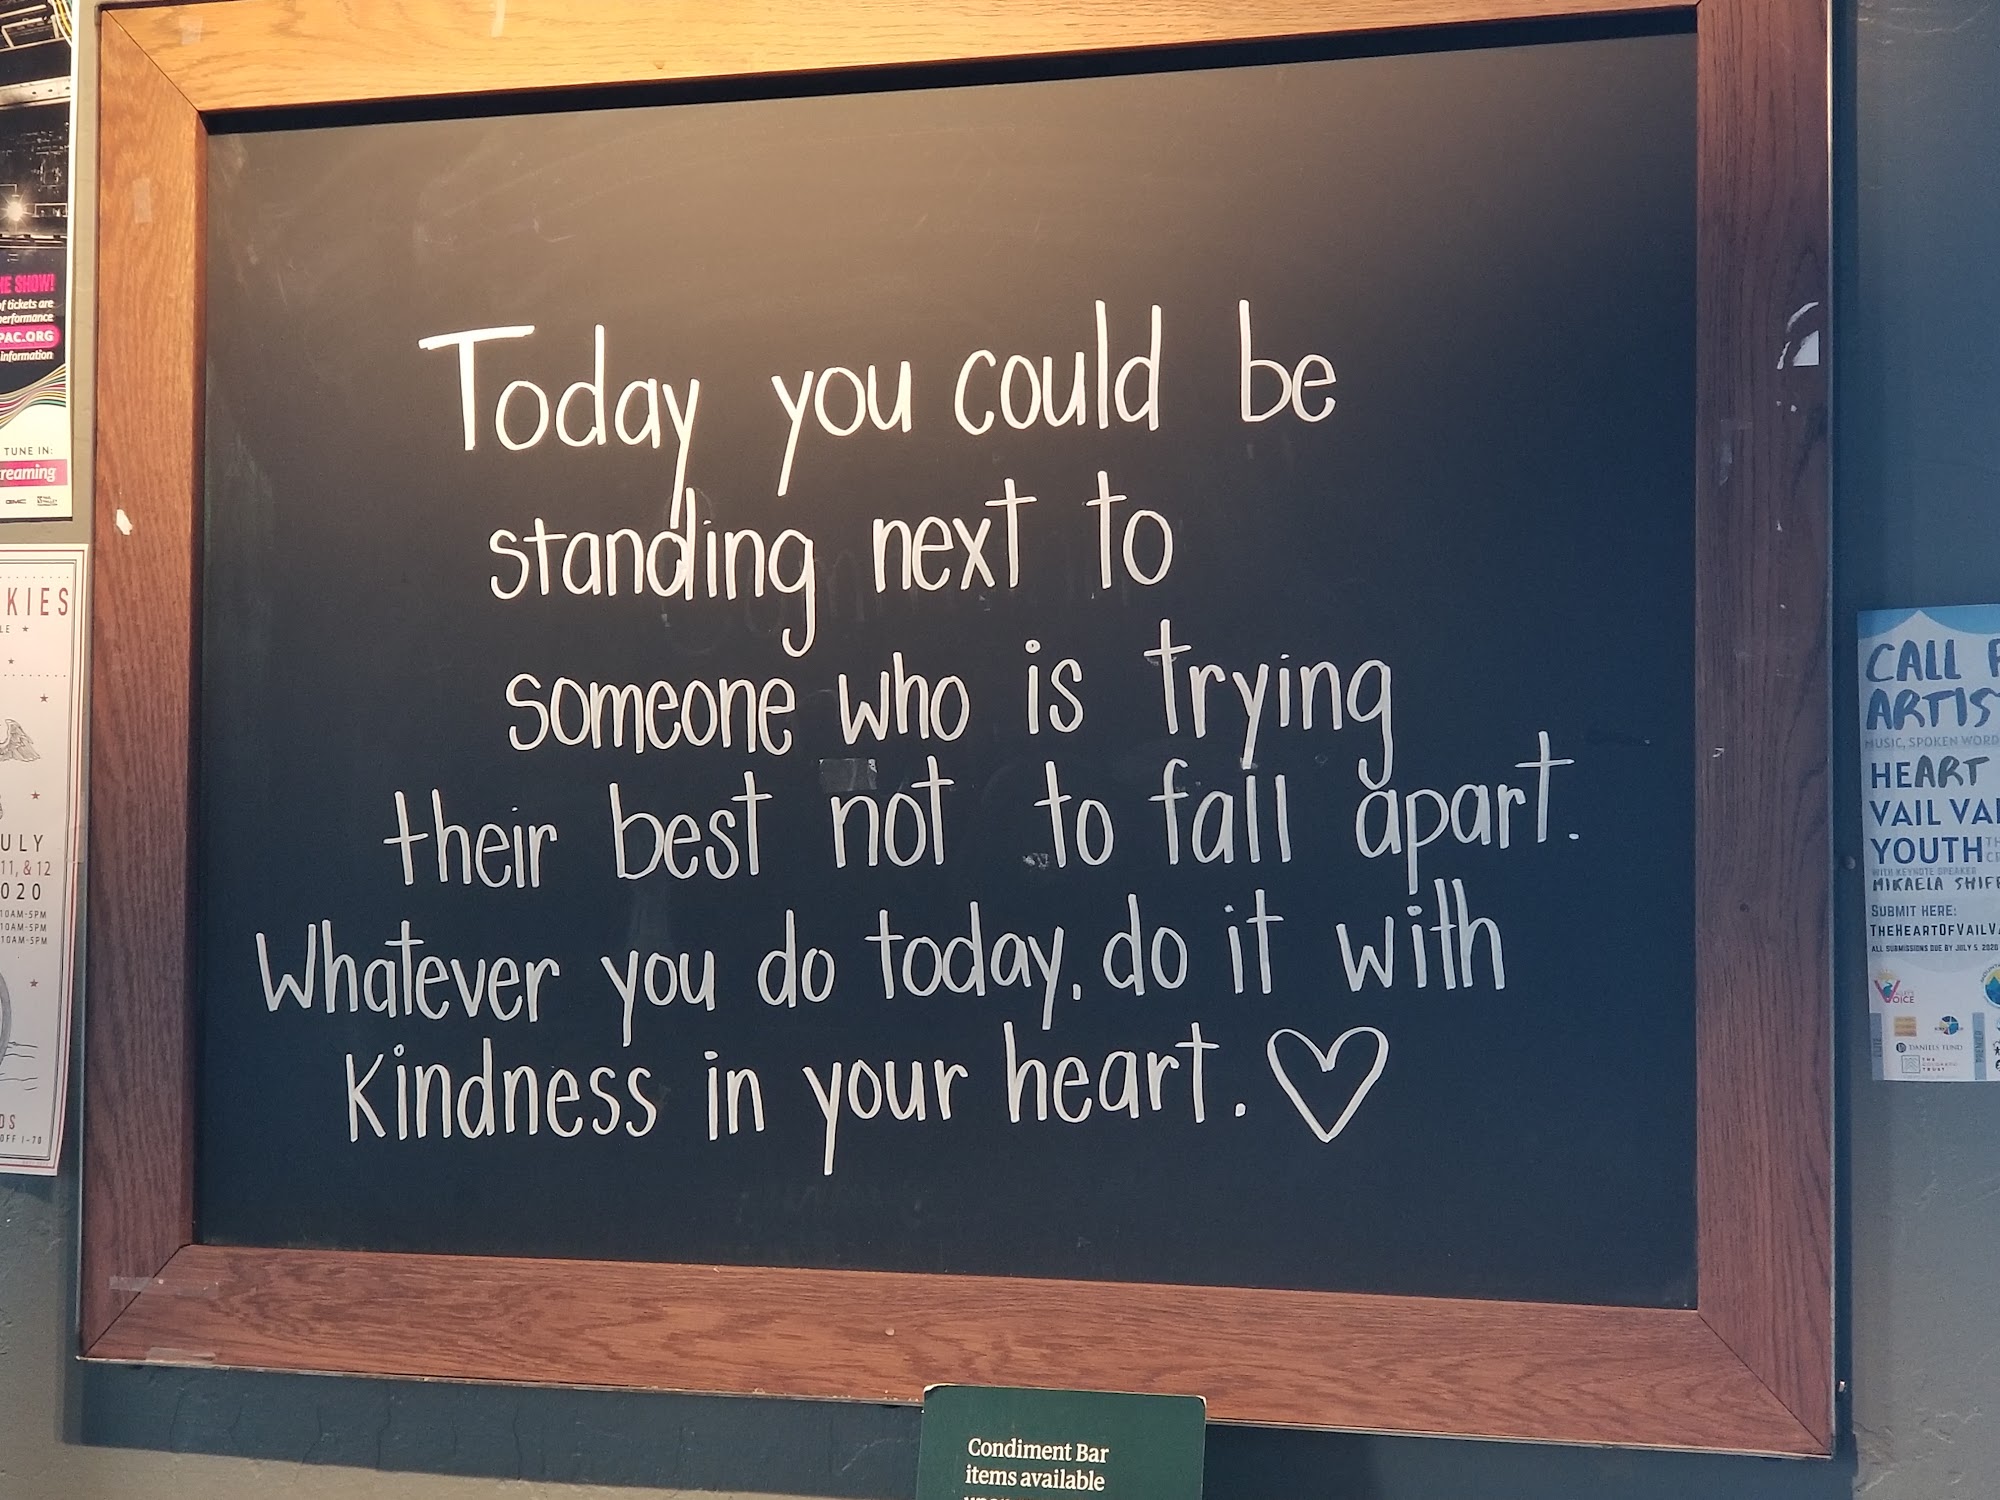 Today you could be
standing next to
someone who is trying
their best not to fall apart.
Whatever you do today, do it with
kindness in your heart.
Condiment Bar
items available
SHOW!
of tickets are
performance
PAC.ORG
information
TUNE IN:
reaming
GMC
KIES
LE
ULY
11, & 12
020
10AM-5PM
10AM-5PM
10AM-5PM
DS
OFF I-70
CALL
ARTIS
MUSIC, SPOKEN WORD
HEART
VAIL VA
YOUTH
WITH KEYNOTE SPEAKER
MIKAELA SHIF
SUBMIT HERE:
THEHEARTOFVAILVA
ALL SUBMISSIONS DUE BY JULY 5, 2020
VOICE
DANIELS FUND
THE
COLORADO
TRUST
PREMIER